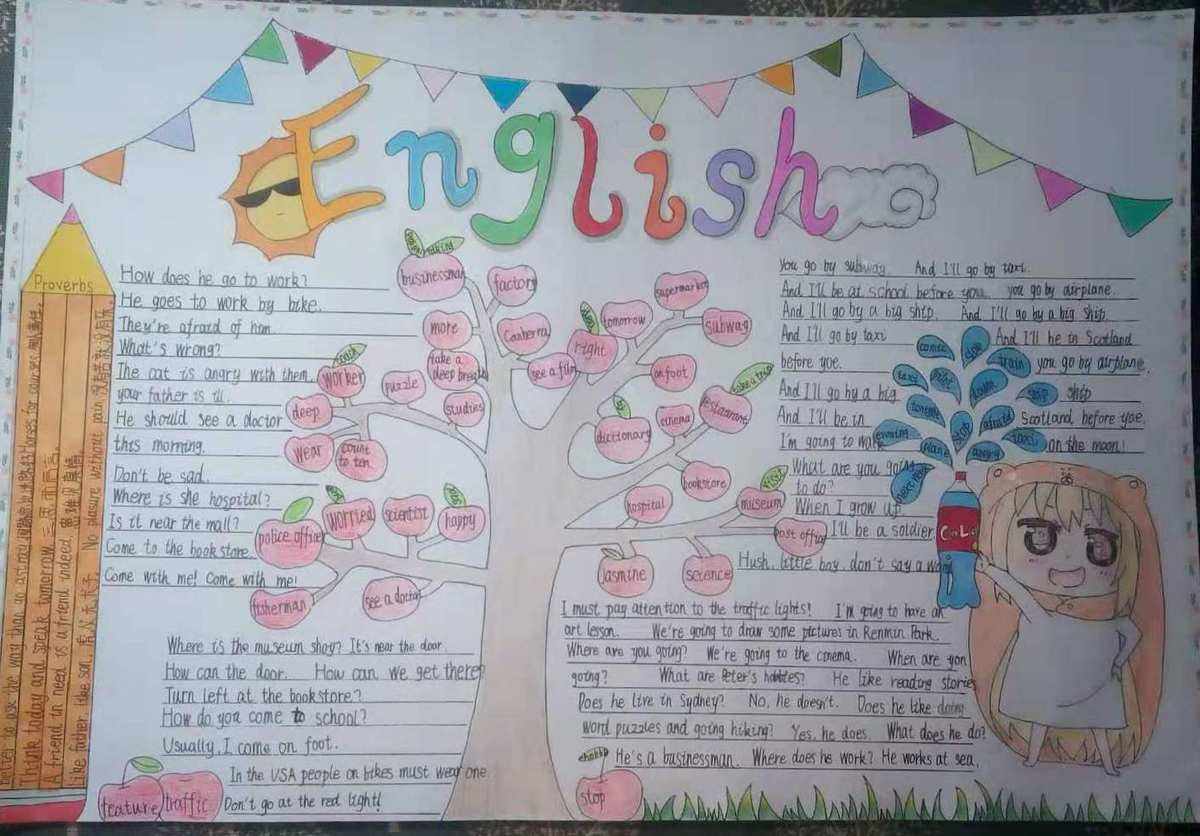 English
Proverbs
better to ask the way than go astray.
Think today and speak tomorrow. 三思而后言。
A friend in need is a friend indeed.
like father, like son. 虎父无犬子。
No pleasure without pain.
How does he go to work?
He goes to work by bike.
They're afraid of him.
What's wrong?
The cat is angry with them.
your father is ill.
He should see a doctor
this morning.
Don't be sad.
Where is she hospital?
Is it near the mall?
Come to the bookstore.
Come with me! Come with me!
Where is the museum shoy? It's near the door.
How can the door. How can we get there?
Turn left at the bookstore?
How do you come to school?
Usually, I come on foot.
In the USA people on bikes must wear one
Don't go at the red light!
feature
traffic
businessman
factory
more
Canberra
take a
deep breath
worker
puzzle
studies
deep
wear
count
to ten
police office
worried
scientist
happy
fisherman
see a doctor
supermarket
tomorrow
subway
right
see a film
on foot
take a trip
restaurant
cinema
dictionary
bookstore
hospital
museum
post office
Jasmine
science
You go by subway. And I'll go by taxi.
And I'll be at school before you. you go by airplane.
And I'll go by a big ship. And I'll go by a big ship.
And I'll go by taxi And I'll be in Scotland
before yoe. you go by airplane.
And I'll go by a big ship
And I'll be in Scotland before yoe.
I'm going to on the moon!
What are you going
to do?
When I grow up
I'll be a soldier
Hush, little boy, don't say a word
come
stop
train
taxi
ship
afraid
stop
evening
plane
angry
I must pay attention to the traffic lights! I'm going to have an
art lesson. We're going to draw some pictures in Renmin Park.
Where are you going? We're going to the cinema. When are yon
going? What are Peter's He like reading stories
Does he live in Sydney? No, he doesn't. Does he like doing
word puzzles and going hiking? Yes, he does. What does he do?
He's a businessman. Where does he work? He works at sea.
stop